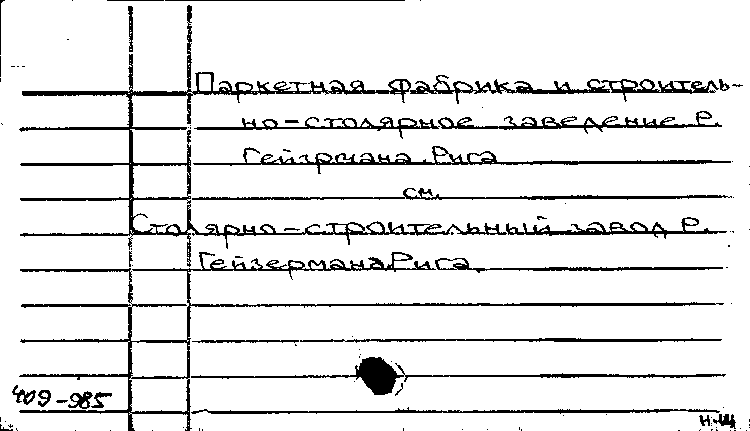 Паркетная фабрика и строитель-
но-столярное заведение Р.
Гейзрмана. Рига
см.
Столярно-строительный завод Р.
Гейзермана. Рига.
409-985
н-щ